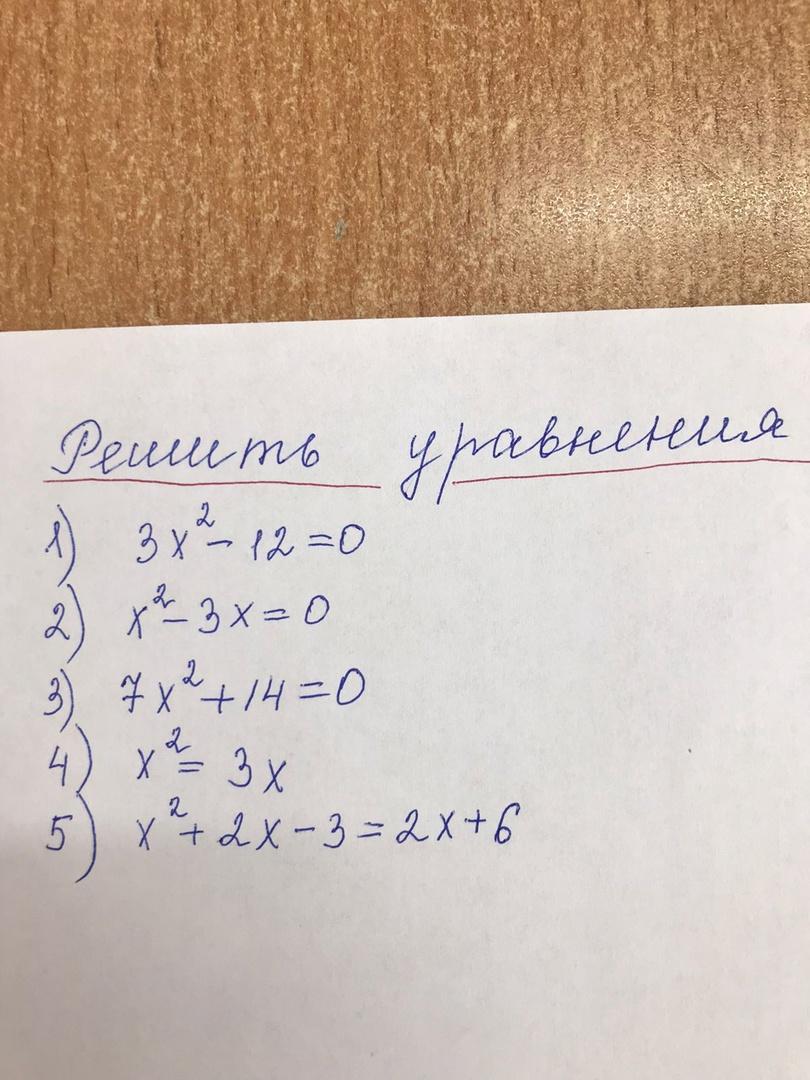 Решить уравнения
1) 3x² - 12 = 0
2) x² - 3x = 0
3) 7x² + 14 = 0
4) x² = 3x
5) x² + 2x - 3 = 2x + 6